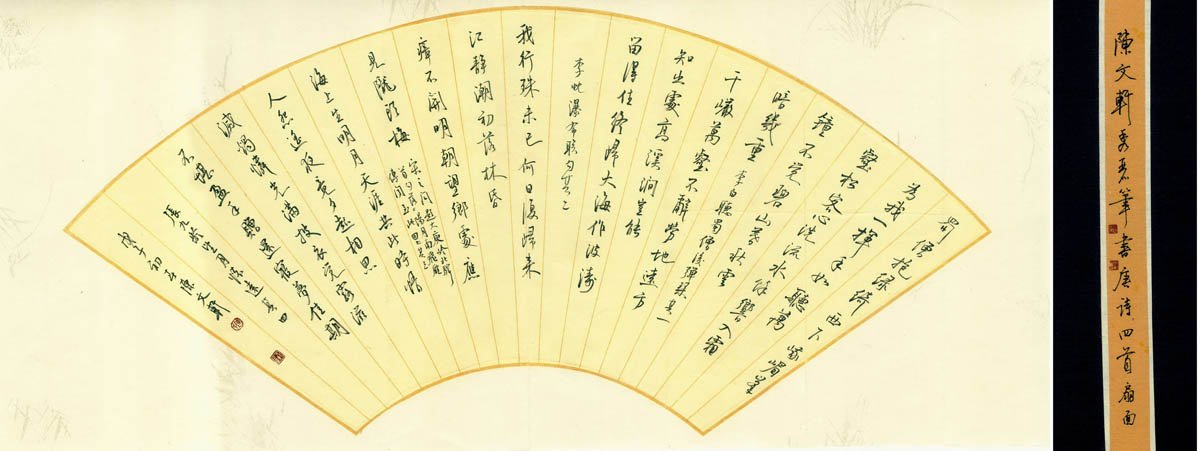 蜀僧抱绿绮西下峨嵋峯
為我一揮手如聽萬
壑松客心洗流水餘響入霜
鐘不覺碧山暮秋雲
暗幾重 李白聽蜀僧濬彈琴其一
千巖萬壑不辭勞地遠方
知出處高溪澗豈能
留得住終歸大海作波濤
李忱瀑布聯句其二
我行殊未已何日復歸來
江靜潮初落林昏
瘴不開明朝望鄉處應
見隴頭梅
宋之問題大庾嶺北驛
首句為陽月南飛雁
傳聞至此回其三
海上生明月天涯共此時情
人怨遙夜竟夕起相思
滅燭憐光滿披衣覺露滋
不堪盈手贈還寢夢佳期
張九齡望月懷遠其四
初五陳文軒
陳文軒筆書唐詩四首扇面